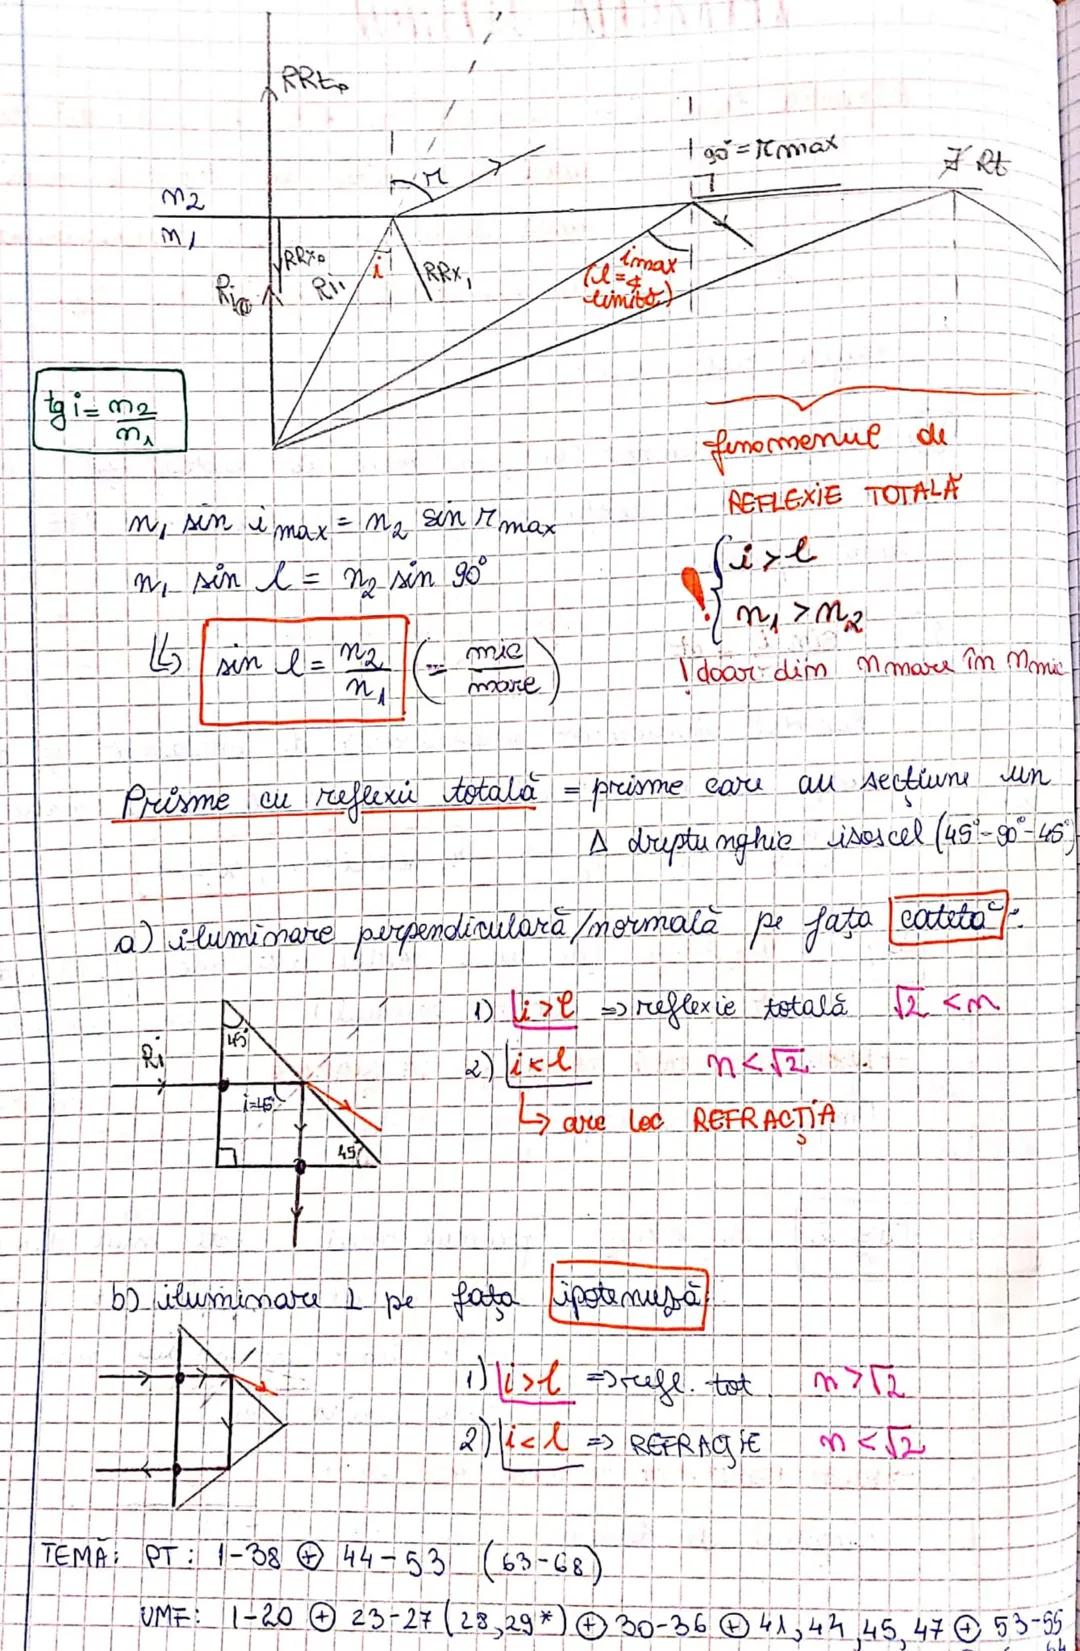 RRt₀
r
90° = r max
∄ Rt
n2
n1
RRx₀
Ri₁
i
RRx₁
Ri₀
imax
(l = ∢
limită)
tg i = n2/n1
fenomenul de
REFLEXIE TOTALĂ
n1 sin i max = n2 sin r max
i > l
n1 sin l = n2 sin 90°
! n1 > n2
↳ sin l = n2/n1 (= mic/mare)
! doar din n mare în n mic
Prisme cu reflexie totală = prisme care au secțiune un
Δ dreptunghic isoscel (45°-90°-45°)
a) iluminare perpendiculară/normală pe fața catetă:
1) i > l => reflexie totală √2 < n
45°
Ri
2) i < l n < √2
i=45°
↳ are loc REFRACȚIA
45°
b) iluminare ⊥ pe fața ipotenuză
1) i > l => refl. tot. n > √2
2) i < l => REFRACȚIE n < √2
TEMĂ: PT: 1-38 ⊕ 44-53 (63-68)
UMF: 1-20 ⊕ 23-27 (28,29*) ⊕ 30-36 ⊕ 41, 44, 45, 47 ⊕ 53-55